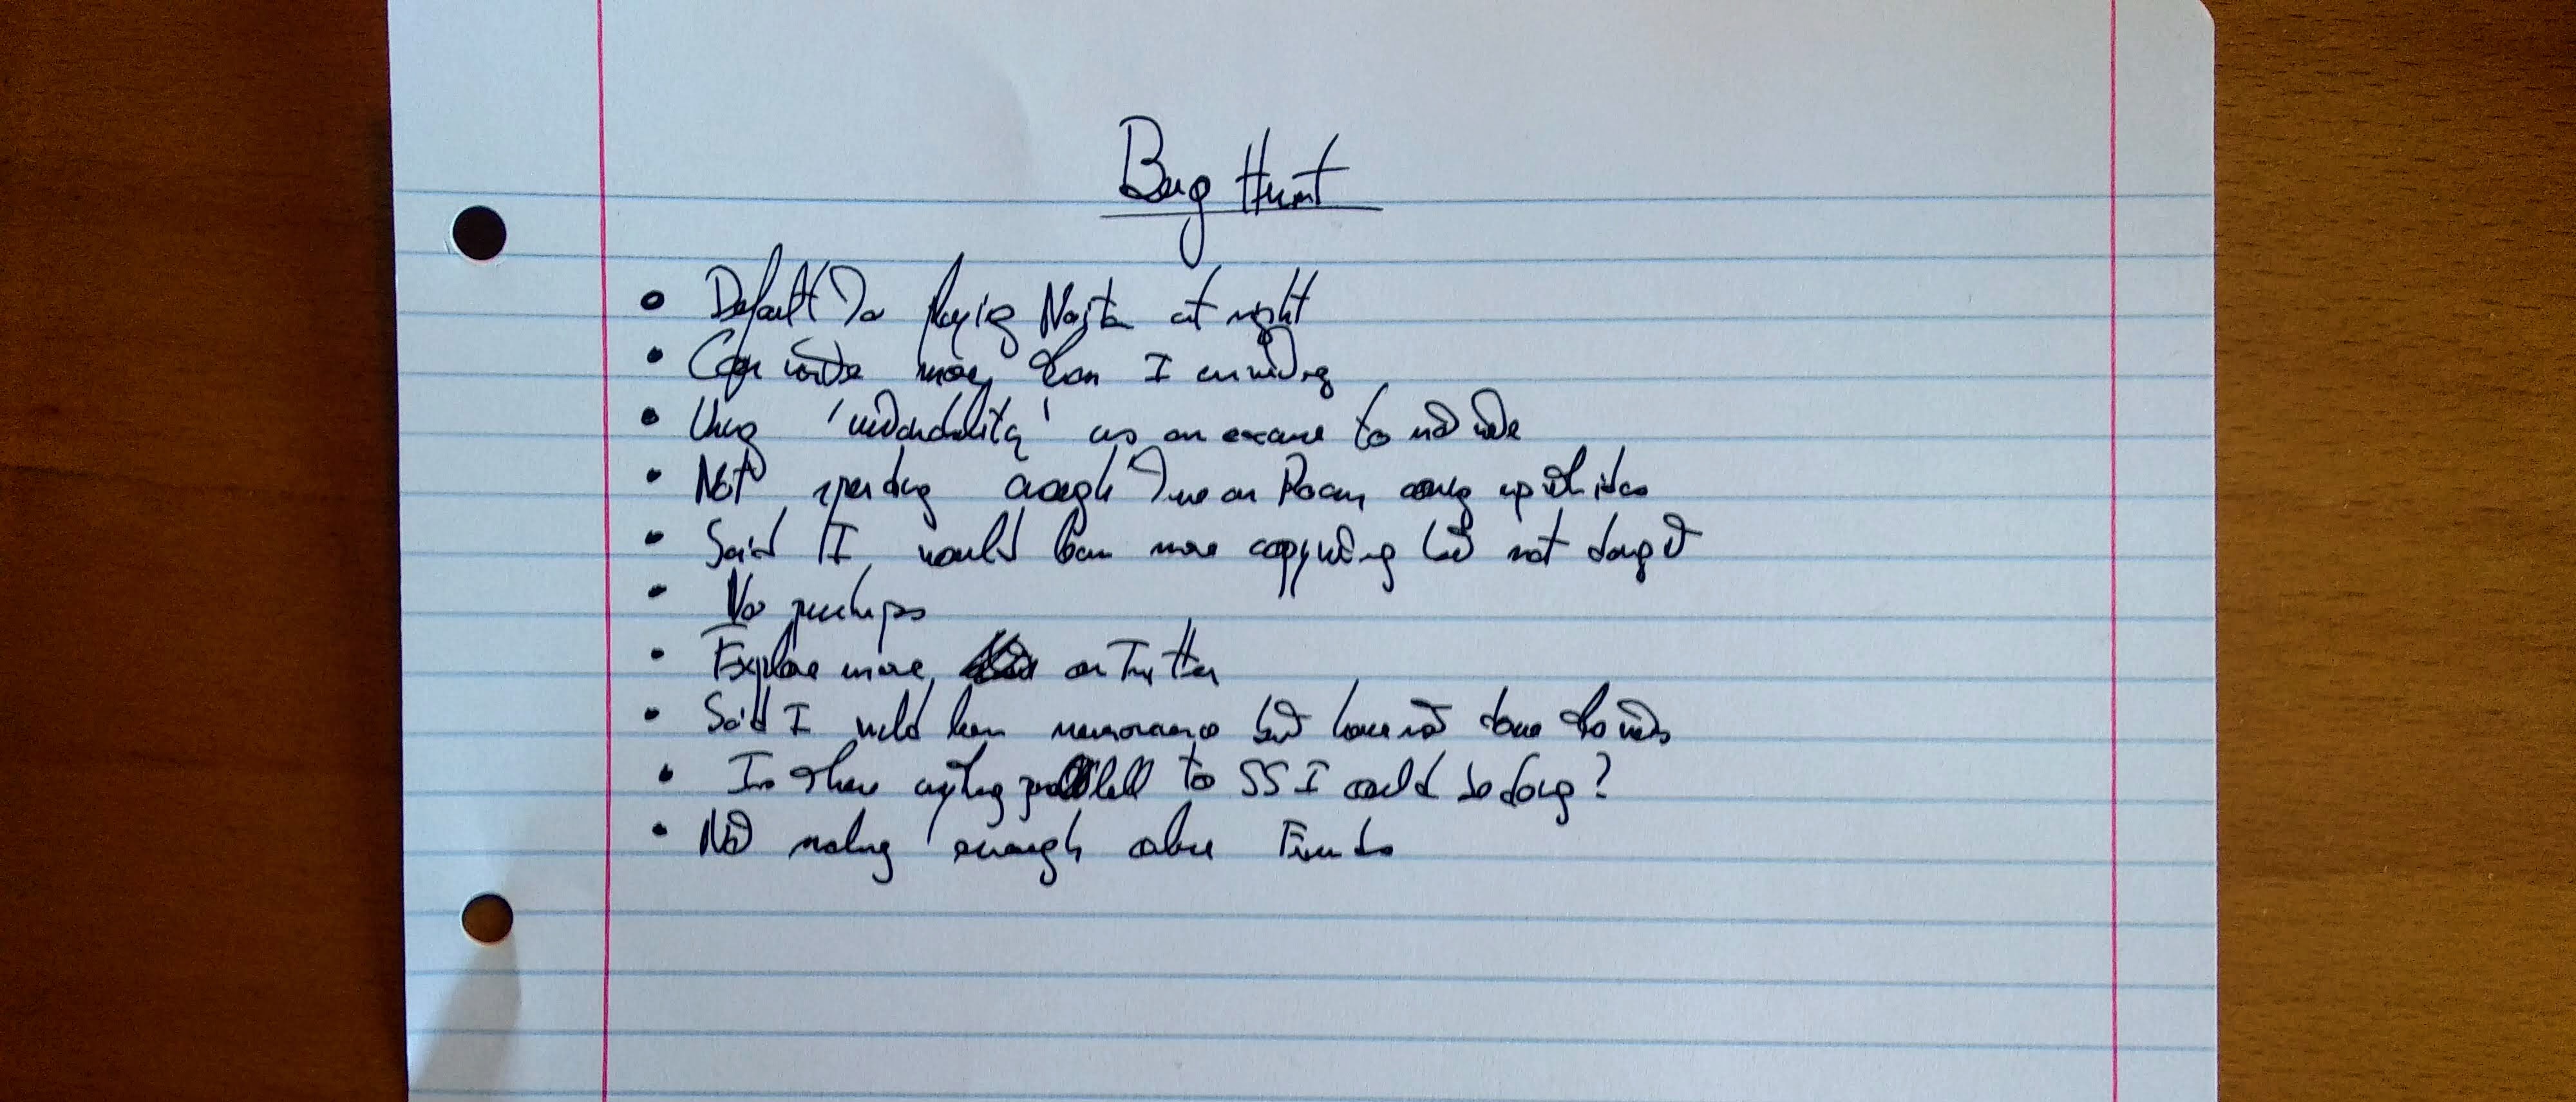 Bug Hunt
• Default to playing at night
• Can write more than I am writing
• Using ' ' as an excuse to not write
• Not spending enough time on Roam coming up with ideas
• Said I would learn more copywriting but not doing it
• No pushups
• Explore more on Twitter
• Said I would learn but have not done
• Is there anything parallel to SS I could be doing?
• Not making enough online Friends